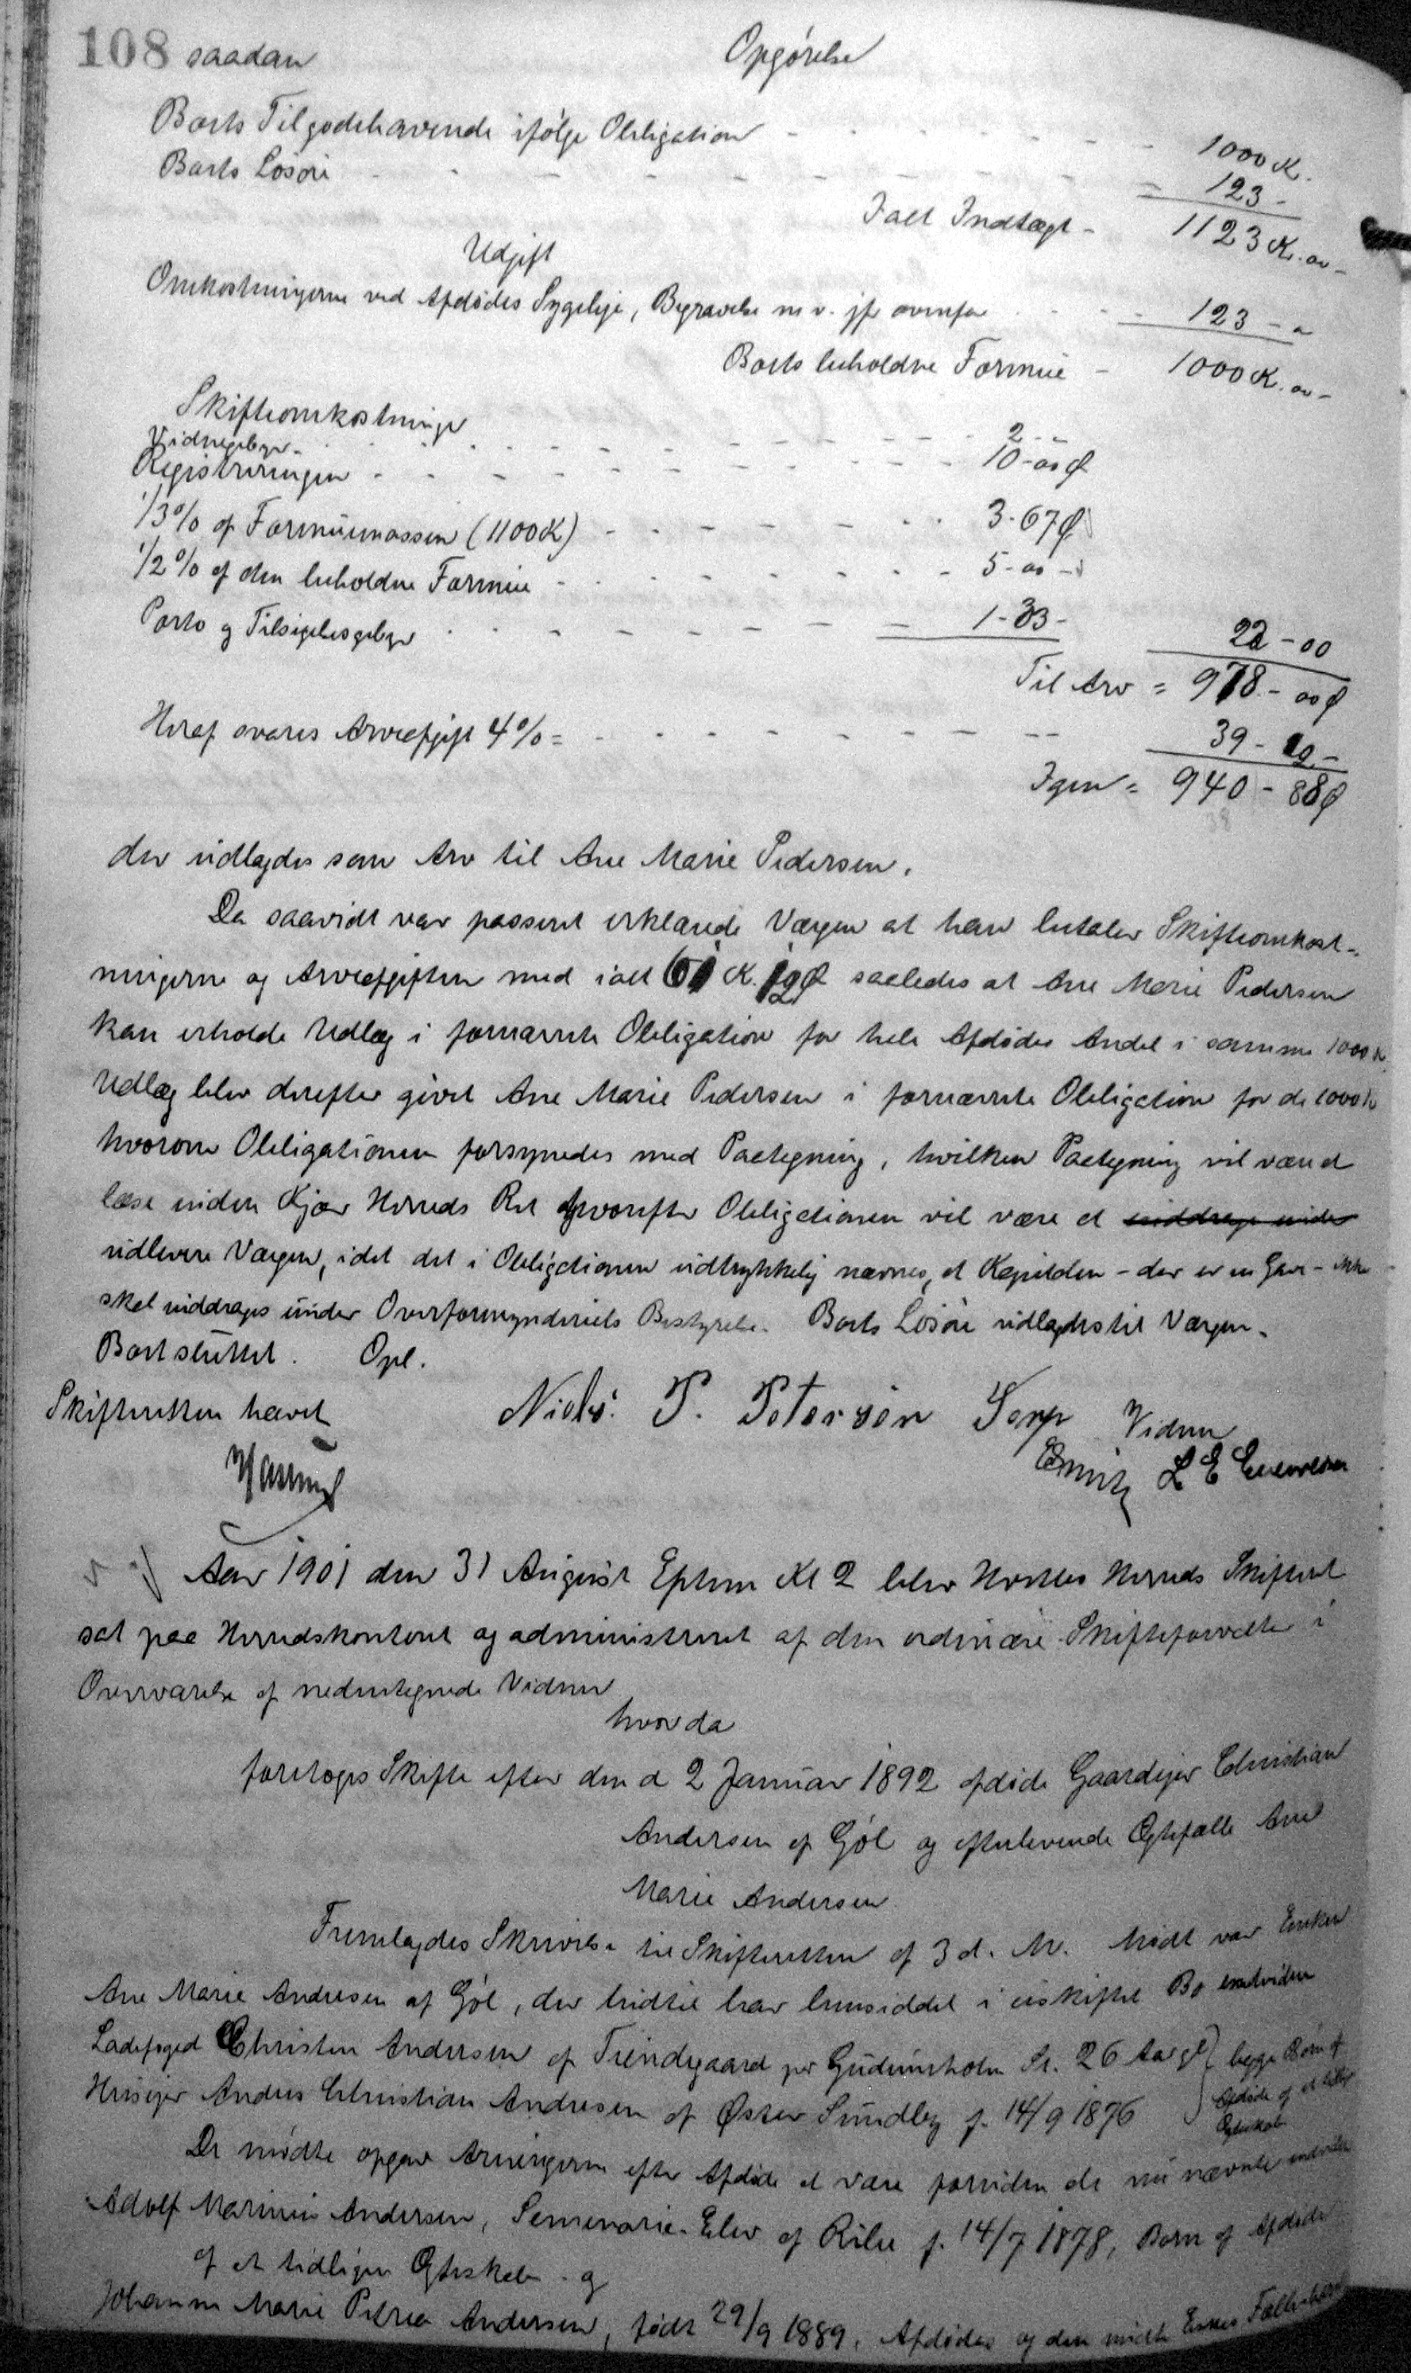 108 saadan Opgørelse
Boets Tilgodehavende ifølge Obligation - - - 1000 K.
Boets Løsøre - - - - - 123 -
Ialt Indtægt - 1123 K. oo -
Udgift
Omkostningerne ved Afdødes Sygeleje, Begravelse m v. jfr ovenfor - 123 - "
Boets beholdne Formue - 1000 K. oo -
Skifteomkostninger
Vidnegebyr - - - - 2 - "
Registreringen - - - - 10 - oo Ø
1/3 % af Formuemassen (1100 K) - - - 3 - 67 Ø
1/2 % af den beholdne Formue - - - 5 - oo -
Porto og Tilsigelsesgebyr - - - 1 - 33 - 22 - 00
Til Arv = 978 - oo Ø
Heraf svares Arveafgift 4% = - - - 39 - 12 -
Igen = 940 - 88 Ø
38
der udlagdes som Arv til Ane Marie Pedersen.
Da saavidt var passeret erklærede Værgen at han betaler Skifteomkost-
ningerne og Arveafgiften med ialt 61 K. 12 Ø saaledes at Ane Marie Pedersen
kan erholde Udlæg i fornævnte Obligation for hele Afdødes Andel i samme 1000 K.
Udlæg blev derefter givet Ane Marie Pedersen i fornævnte Obligation for de 1000 K
hvorom Obligationen forsynedes med Paategning, hvilken Paategning vil være at
læse inden Kjær Herreds Ret hvorefter Obligationen vil være at inddrage under
udlevere Værgen, idet det i Obligationen udtrykkelig nævnes, at Kapitalen - der er en Gave - ikke
skal inddrages under Overformynderiets Bestyrelse. Boets Løsøre udlagdes til Værgen.
Boet sluttet. Opl.
Skifteretten hævet Niels P. Petersen Torp Vidner
Emil L E
Aar 1901 den 31 August Efterm Kl 2 blev Hvetbo Herreds Skifteret
sat paa Herredskontoret og administreret af den ordinære Skifteforvalter i
Overværelse af nedentegnede Vidner
hvor da
foretoges Skifte efter den d 2 Januar 1892 afdøde Gaardejer Christian
Andersen af Gjøl og efterlevende Ægtefælle Ane
Marie Andersen
Fremlagdes Skrivelse til Skifteretten af 3 d. M. Mødt var Enken
Ane Marie Andersen af Gjøl, der hidtil har hensiddet i uskiftet Bo endvidere
Ladefoged Christen Andersen af Tiendegaard per Gudumholm St. 26 Aar gl } begge Børn af
Husejer Anders Christian Andersen af Øster Sundby f. 14/9 1876 } Afdøde af et tidligere
Ægteskab
De mødte opgav Arvingerne efter Afdøde at være foruden de nu nævnte endvidere
Adolf Marinus Andersen, Seminarie-Elev af Ribe f. 14/7 1878, Barn af Afdøde
af et tidligere Ægteskab - og
Johanne Marie Petrea Andersen, født 29/9 1889, Afdødes og den mødte Enkes Fællesbarn